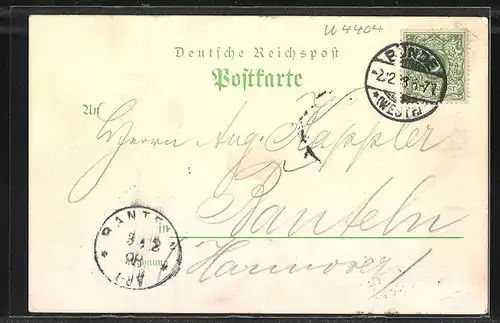 W4404
Deutsche Reichspost
Postkarte
BÜNDE
2/2 98 6-7N
* (WESTF.)
An
Herrn Aug. Kappler
in Banteln
Hannover
BANTELN
3/2
98